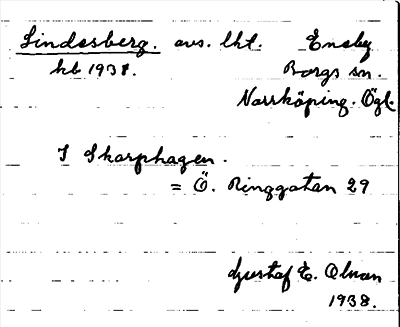 Lindesberg. avs. lht. Eneby
kb 1938. Borgs sn.
Norrköping. Ögl.
I Skarphagen.
= Ö. Ringgatan 29
Gustaf E. Olman
1938.